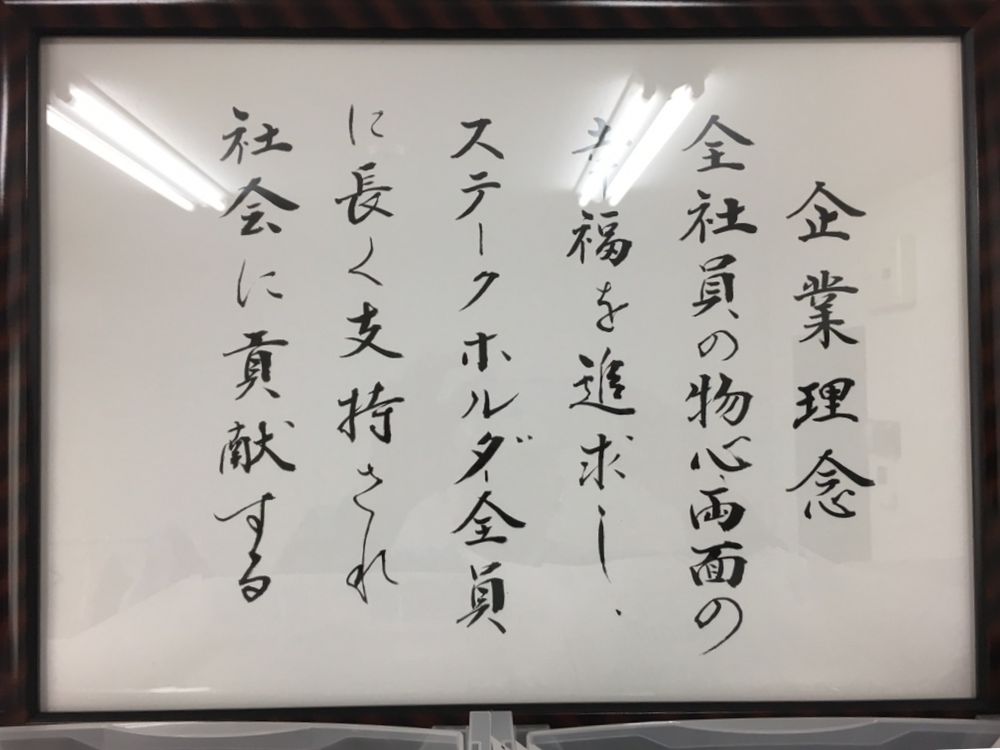 企業理念
全社員の物心両面の
幸福を追求し、
ステークホルダー全員
に長く支持され
社会に貢献する